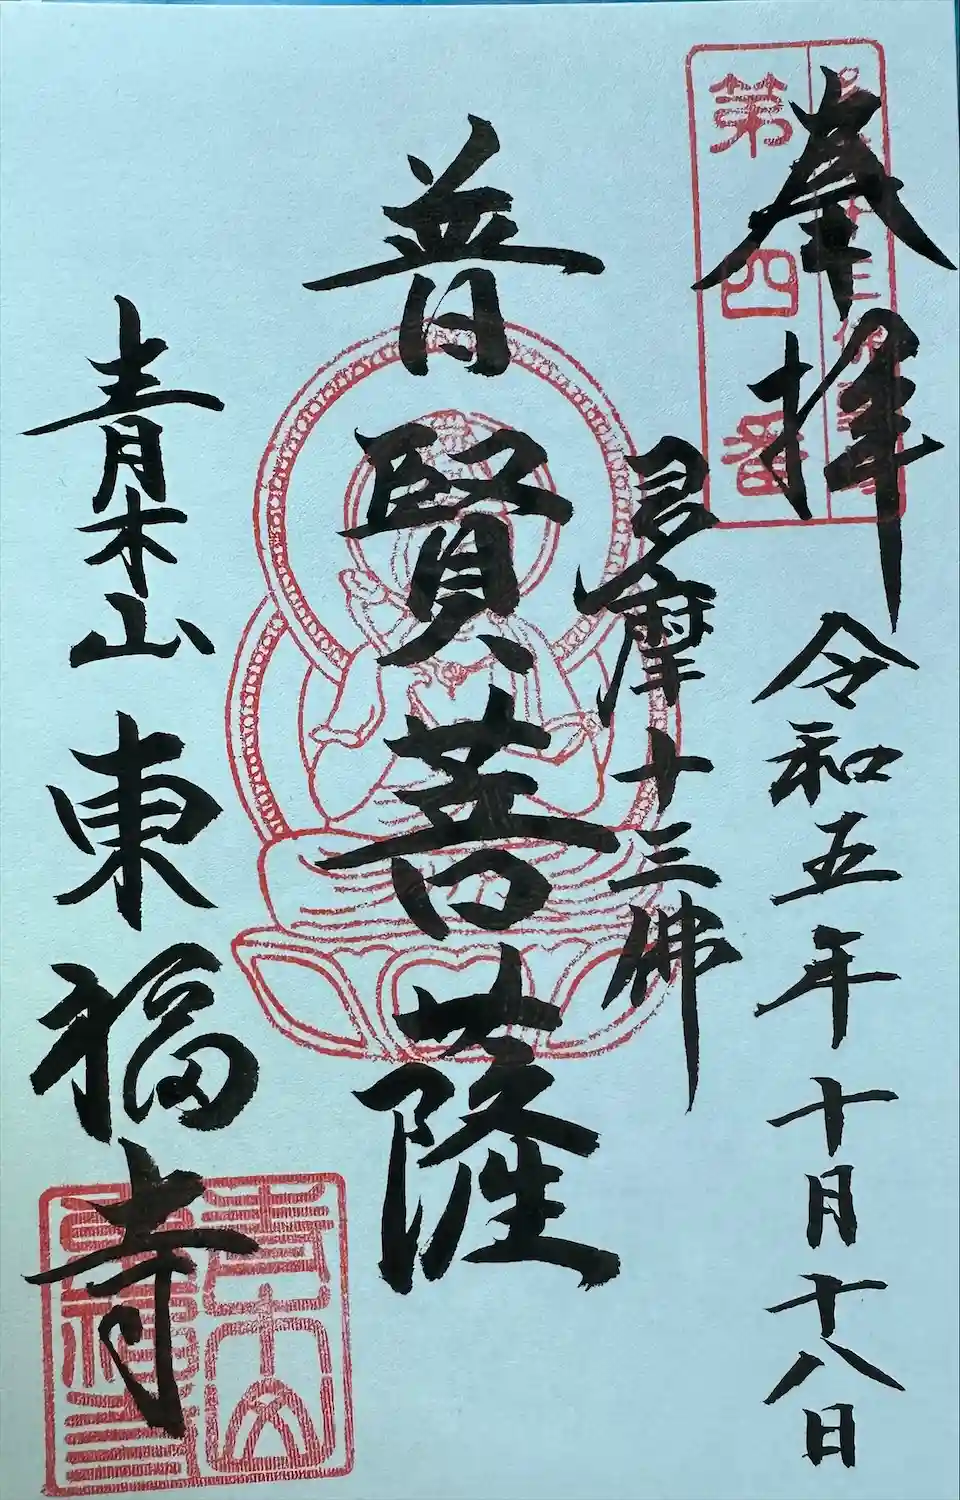 奉拝
令和五年十月十八日
第四番
多摩十三佛
普賢菩薩
青木山
東福寺